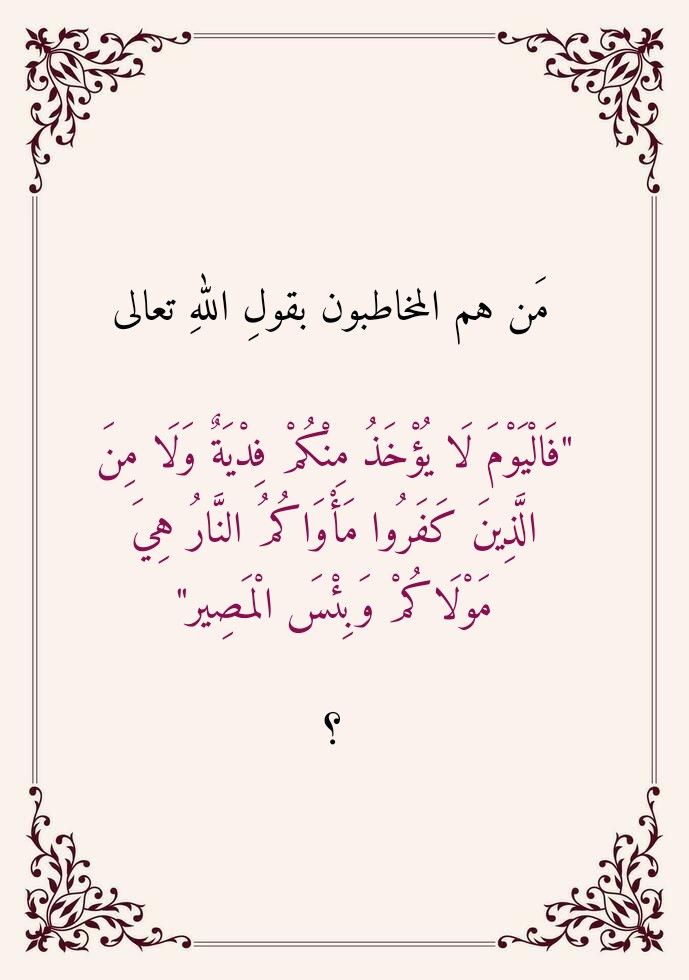 مَن هم المخاطبون بقولِ اللهِ تعالى
"فَالْيَوْمَ لَا يُؤْخَذُ مِنْكُمْ فِدْيَةٌ وَلَا مِنَ
الَّذِينَ كَفَرُوا مَأْوَاكُمُ النَّارُ هِيَ
مَوْلَاكُمْ وَبِئْسَ الْمَصِير"
؟